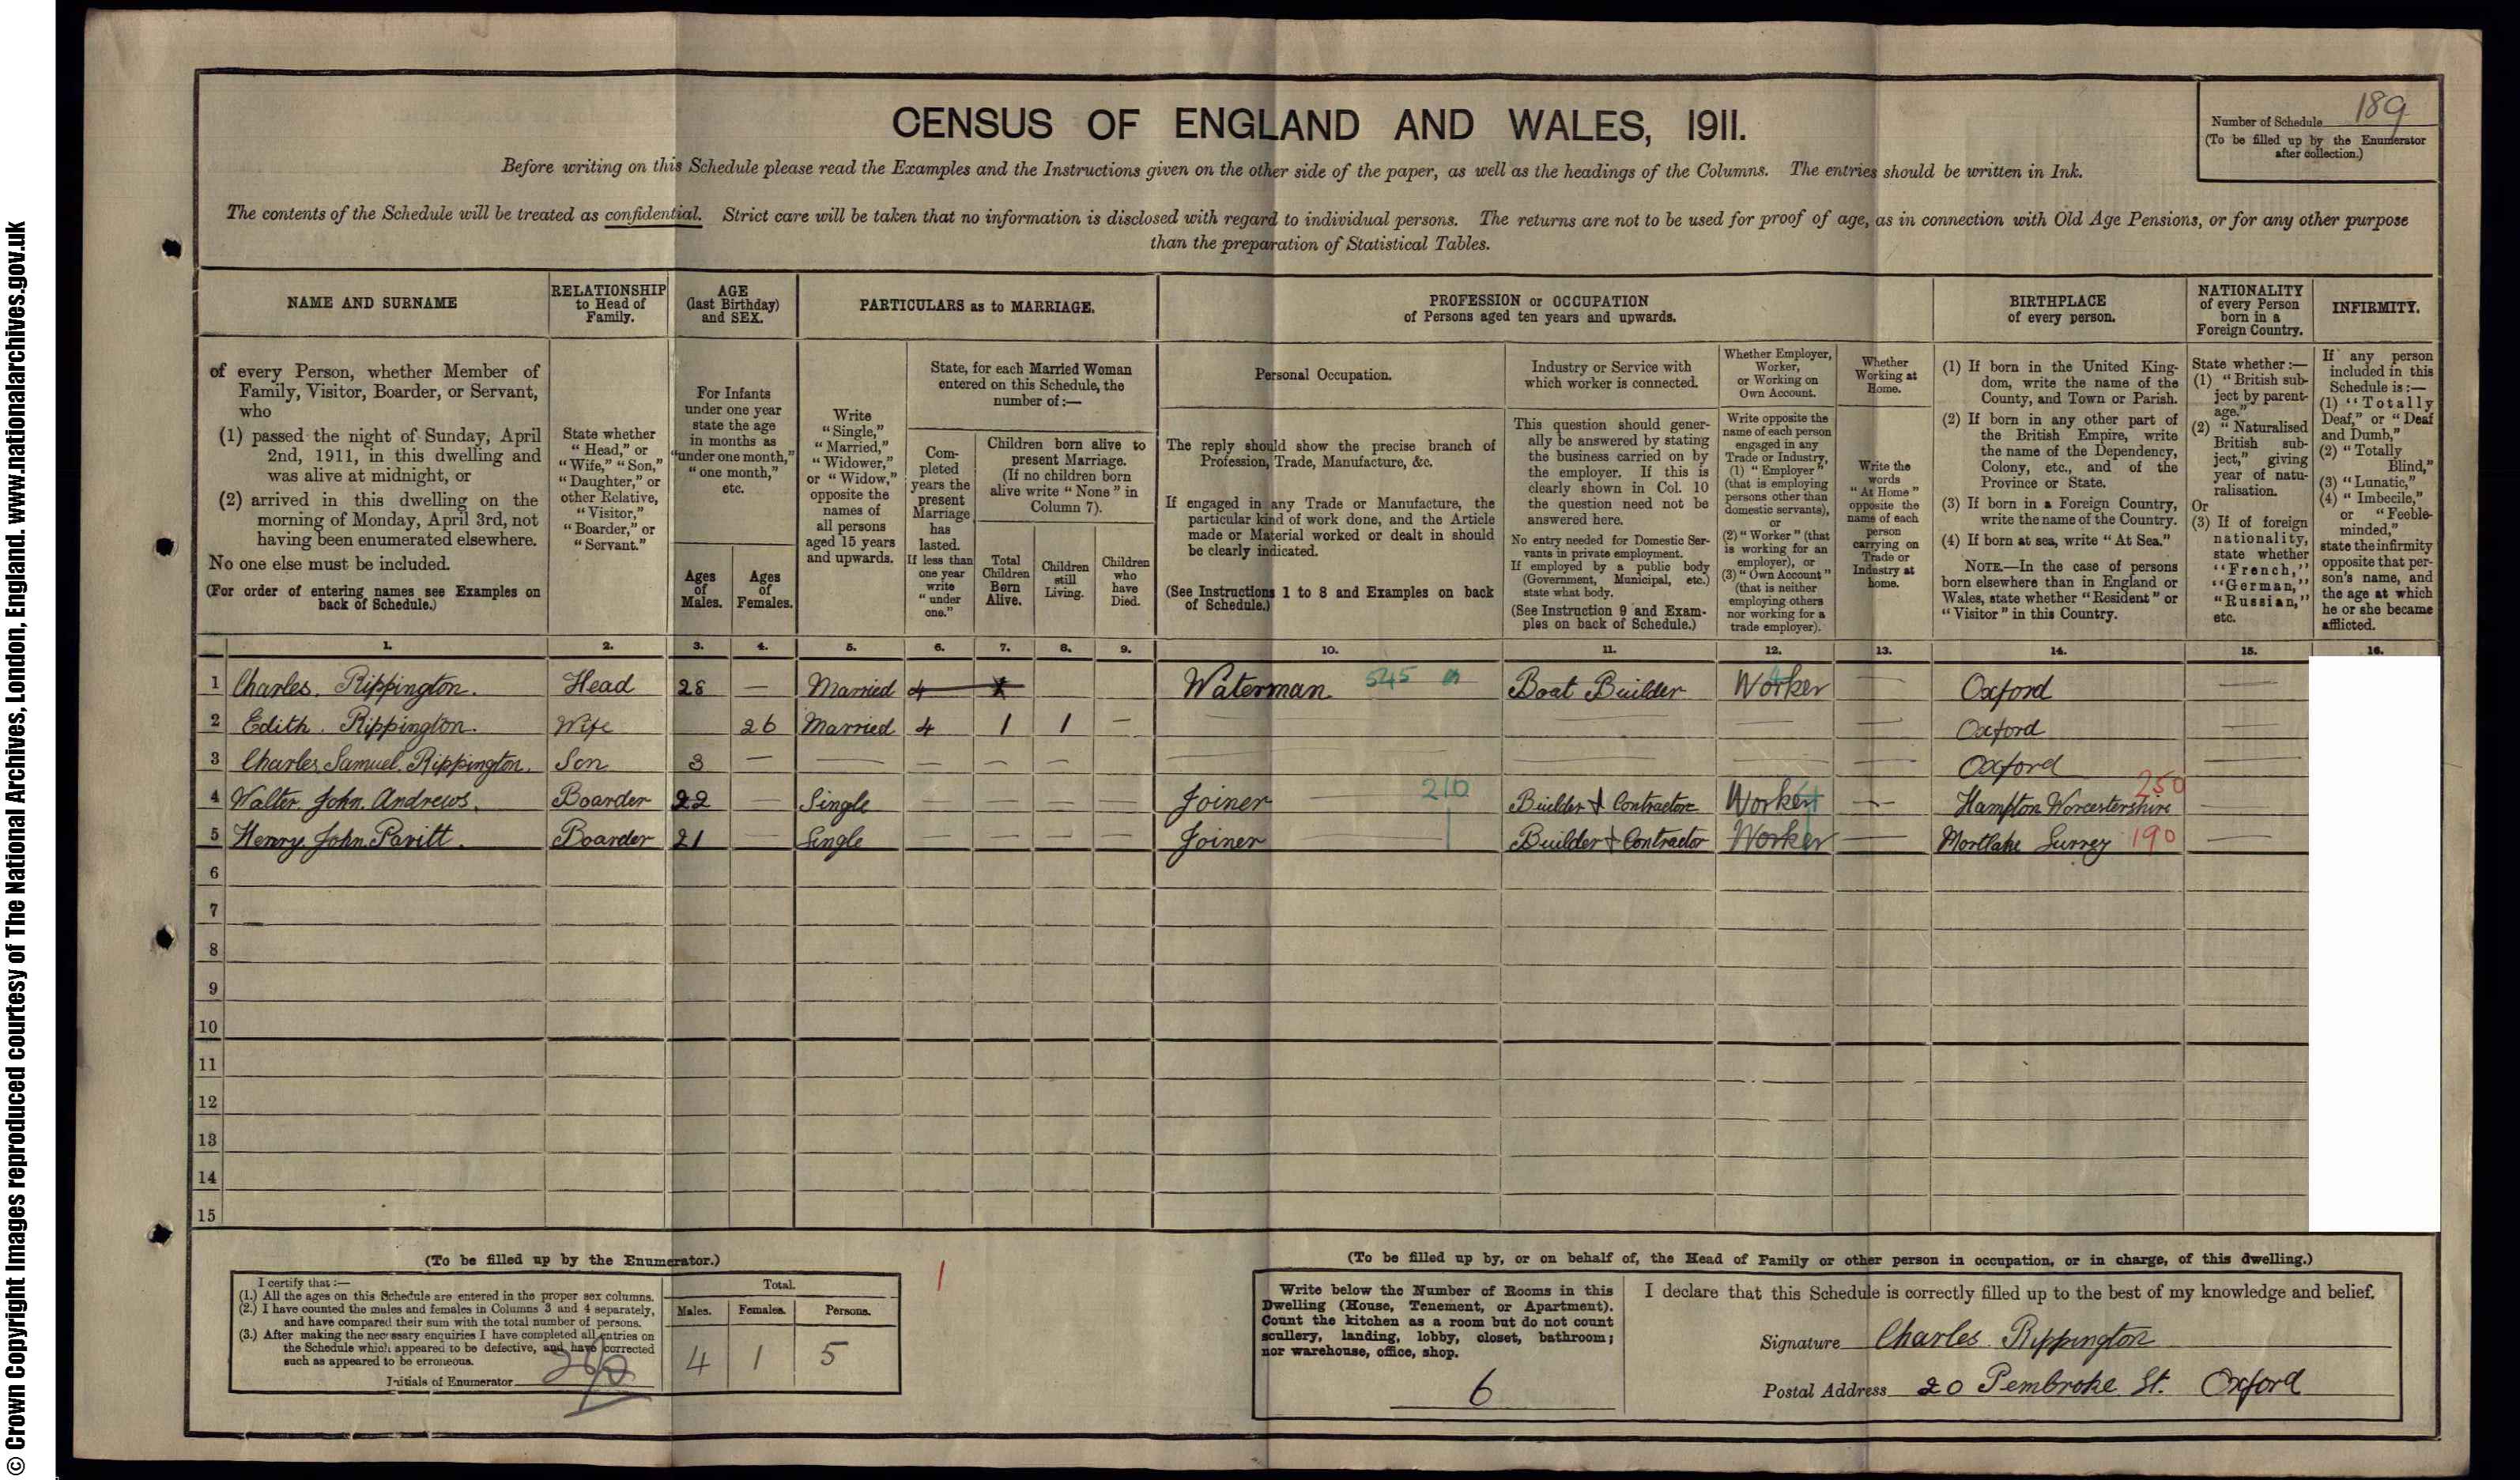 © Crown Copyright Images reproduced courtesy of The National Archives, London, England. www.nationalarchives.gov.uk
CENSUS OF ENGLAND AND WALES, 1911.
Number of Schedule 189
(To be filled up by the Enumerator
after collection.)
Before writing on this Schedule please read the Examples and the Instructions given on the other side of the paper, as well as the headings of the Columns. The entries should be written in Ink.
The contents of the Schedule will be treated as confidential. Strict care will be taken that no information is disclosed with regard to individual persons. The returns are not to be used for proof of age, as in connection with Old Age Pensions, or for any other purpose
than the preparation of Statistical Tables.
NAME AND SURNAME
of every Person, whether Member of
Family, Visitor, Boarder, or Servant,
who
(1) passed the night of Sunday, April
2nd, 1911, in this dwelling and
was alive at midnight, or
(2) arrived in this dwelling on the
morning of Monday, April 3rd, not
having been enumerated elsewhere.
No one else must be included.
(For order of entering names see Examples on
back of Schedule.)
RELATIONSHIP
to Head of
Family.
State whether
"Head," or
"Wife," "Son,"
"Daughter," or
other Relative,
"Visitor,"
"Boarder," or
"Servant."
AGE
(last Birthday)
and SEX.
For Infants
under one year
state the age
in months as
"under one month,"
"one month,"
etc.
Ages
of
Males.
Ages
of
Females.
PARTICULARS as to MARRIAGE.
Write
"Single,"
"Married,"
"Widower,"
or "Widow,"
opposite the
names of
all persons
aged 15 years
and upwards.
State, for each Married Woman
entered on this Schedule, the
number of:—
Com-
pleted
years the
present
Marriage
has
lasted.
If less than
one year
write
"under
one."
Children born alive to
present Marriage.
(If no children born
alive write "None" in
Column 7).
Total
Children
Born
Alive.
Children
still
Living.
Children
who
have
Died.
PROFESSION or OCCUPATION
of Persons aged ten years and upwards.
Personal Occupation.
The reply should show the precise branch of
Profession, Trade, Manufacture, &c.
If engaged in any Trade or Manufacture, the
particular kind of work done, and the Article
made or Material worked or dealt in should
be clearly indicated.
(See Instructions 1 to 8 and Examples on back
of Schedule.)
Industry or Service with
which worker is connected.
This question should gener-
ally be answered by stating
the business carried on by
the employer. If this is
clearly shown in Col. 10
the question need not be
answered here.
No entry needed for Domestic Ser-
vants in private employment.
If employed by a public body
(Government, Municipal, etc.)
state what body.
(See Instruction 9 and Exam-
ples on back of Schedule.)
Whether Employer,
Worker,
or Working on
Own Account.
Write opposite the
name of each person
engaged in any
Trade or Industry,
(1) "Employer"
(that is employing
persons other than
domestic servants),
or
(2) "Worker" (that
is working for an
employer), or
(3) "Own Account"
(that is neither
employing others
nor working for a
trade employer).
Whether
Working at
Home.
Write the
words
"At Home"
opposite the
name of each
person
carrying on
Trade or
Industry at
home.
BIRTHPLACE
of every person.
(1) If born in the United King-
dom, write the name of the
County, and Town or Parish.
(2) If born in any other part of
the British Empire, write
the name of the Dependency,
Colony, etc., and of the
Province or State.
(3) If born in a Foreign Country,
write the name of the Country.
(4) If born at sea, write "At Sea."
NOTE.—In the case of persons
born elsewhere than in England or
Wales, state whether "Resident" or
"Visitor" in this Country.
NATIONALITY
of every Person
born in a
Foreign Country.
State whether:—
(1) "British sub-
ject by parent-
age."
(2) "Naturalised
British sub-
ject," giving
year of natu-
ralisation.
Or
(3) If of foreign
nationality,
state whether
"French,"
"German,"
"Russian,"
etc.
INFIRMITY.
If any person
included in this
Schedule is:—
(1) "Totally
Deaf," or "Deaf
and Dumb,"
(2) "Totally
Blind,"
(3) "Lunatic,"
(4) "Imbecile,"
or "Feeble-
minded,"
state the infirmity
opposite that per-
son's name, and
the age at which
he or she became
afflicted.
1. 2. 3. 4. 5. 6. 7. 8. 9. 10. 11. 12. 13. 14. 15. 16.
1 Charles. Rippington. Head 28 — Married 4 1 Waterman 545 Boat Builder Worker — Oxford —
2 Edith. Rippington. Wife 26 Married 4 1 1 — — — — Oxford —
3 Charles Samuel. Rippington. Son 3 — — — — — — — — — Oxford —
4 Walter. John. Andrews. Boarder 22 — Single — — — — Joiner 210 Builder & Contractor Worker — Hampton Worcestershire 250 —
5 Henry John Pavitt. Boarder 21 — Single — — — — Joiner Builder & Contractor Worker — Mortlake Surrey 190 —
6
7
8
9
10
11
12
13
14
15
(To be filled up by the Enumerator.)
I certify that:—
(1.) All the ages on this Schedule are entered in the proper sex columns.
(2.) I have counted the males and females in Columns 3 and 4 separately,
and have compared their sum with the total number of persons.
(3.) After making the necessary enquiries I have completed all entries on
the Schedule which appeared to be defective, and have corrected
such as appeared to be erroneous.
Initials of Enumerator
Total.
Males. Females. Persons.
4 1 5
1
(To be filled up by, or on behalf of, the Head of Family or other person in occupation, or in charge, of this dwelling.)
Write below the Number of Rooms in this
Dwelling (House, Tenement, or Apartment).
Count the kitchen as a room but do not count
scullery, landing, lobby, closet, bathroom;
nor warehouse, office, shop.
6
I declare that this Schedule is correctly filled up to the best of my knowledge and belief.
Signature Charles Rippington
Postal Address 20 Pembroke St. Oxford